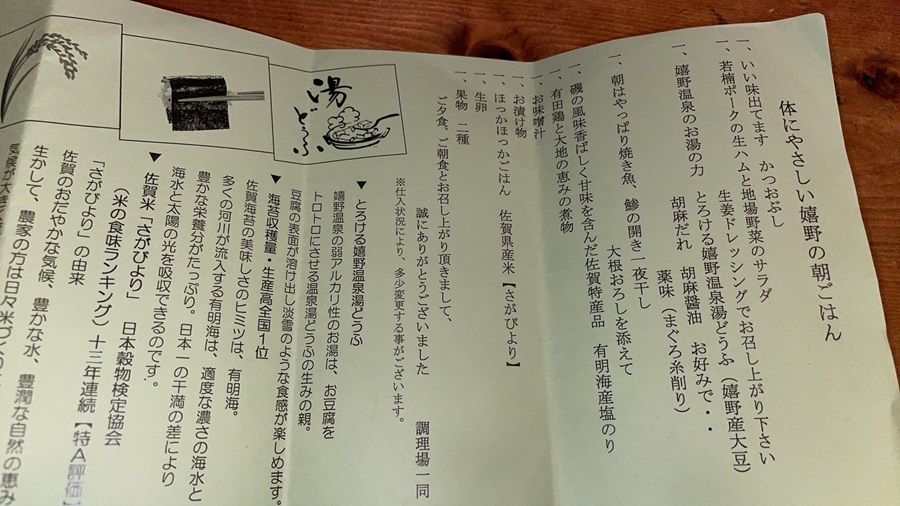 体にやさしい嬉野の朝ごはん
一、いい味出てます　かつおぶし
一、若楠ポークの生ハムと地場野菜のサラダ
生姜ドレッシングでお召し上がり下さい
一、嬉野温泉のお湯の力　とろける嬉野温泉湯どうふ（嬉野産大豆）
胡麻だれ　胡麻醤油　お好みで・・
薬味（まぐろ糸削り）
一、朝はやっぱり焼き魚、鯵の開き一夜干し
大根おろしを添えて
一、磯の風味香ばしく甘味を含んだ佐賀特産品　有明海産塩のり
一、有田鶏と大地の恵みの煮物
一、お味噌汁
一、お漬け物
一、ほっかほっかごはん　佐賀県産米【さがびより】
一、生卵
一、果物　二種
ご夕食、ご朝食とお召し上がり頂きまして、
誠にありがとうございました
調理場一同
※仕入状況により、多少変更する事がございます。
湯どうふ
▼とろける嬉野温泉湯どうふ
嬉野温泉の弱アルカリ性のお湯は、お豆腐を
トロトロにさせる温泉湯どうふの生みの親。
豆腐の表面が溶け出し淡雪のような食感が楽しめます。
▼海苔収穫量・生産高全国１位
佐賀海苔の美味しさのヒミツは、有明海。
多くの河川が流入する有明海は、適度な濃さの海水と
豊かな栄養分がたっぷり。日本一の干満の差により
海水と太陽の光を吸収できるのです。
▼佐賀米「さがびより」　日本穀物検定協会
（米の食味ランキング）十三年連続【特Ａ評価】
「さがびより」の由来
佐賀のおだやかな気候、豊かな水、豊潤な自然の恵み
生かして、農家の方は日々米づくり
気候が大き